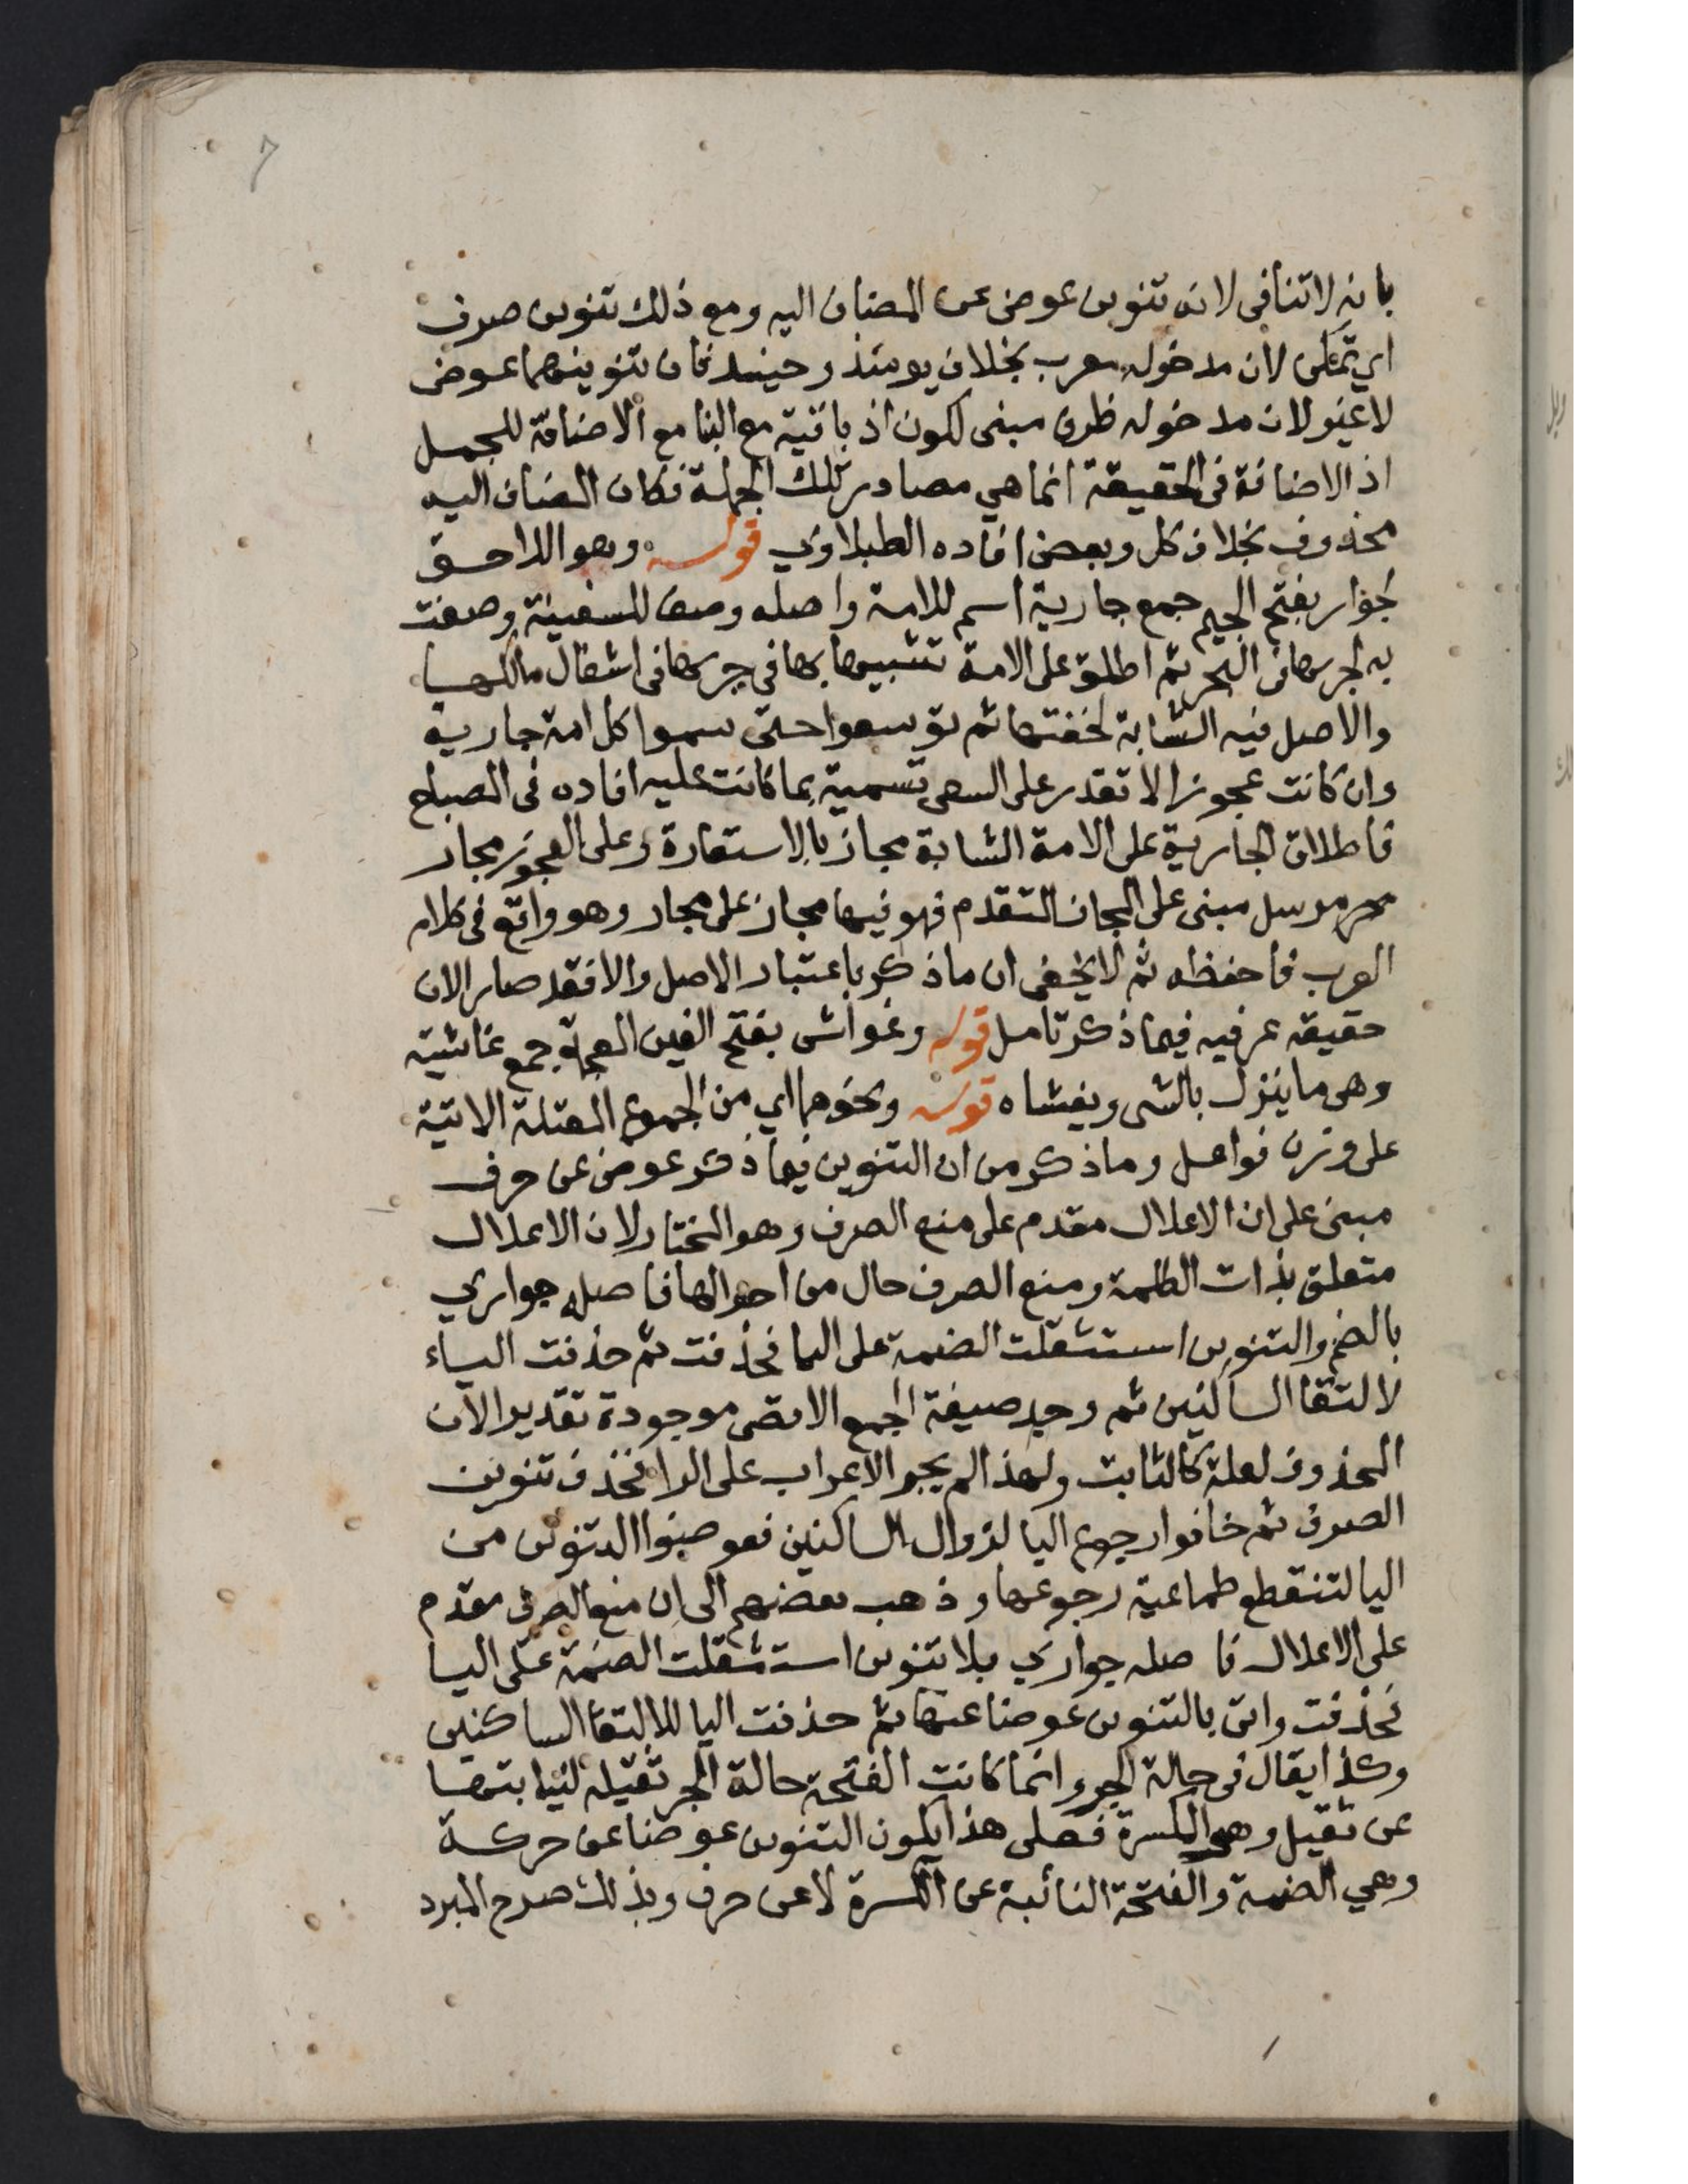 7
بانه لاتنافى لانه تنوين عوض عن المضاف اليه ومع ذلك تنوين صرف
اي تمكن لان مدخوله معرب بخلاف يومئذ وحينئذ فان تنوينهما عوض
لا غير لان مدخوله ظرف مبنى لكون اذ باقية مع البنا مع الاضافة للجمل
اذ الاضافة فى الحقيقة انما هي مصادر تلك الجملة فكان المضاف اليه
محذوف بخلاف كل وبعض افاده الطبلاوي قوله وهو اللاحق
لجوار بفتح الجيم جمع جارية اسم للامة واصله وصف للسفينة وصفت
به لجريها فى البحر ثم اطلق على الامة تشبيها بها في جريها فى اشغال مالكها
والاصل فيه الشابة لخفتها ثم توسعوا حتى سموا كل امة جارية
وان كانت عجوزا لا تقدر على السعى تسمية بما كانت عليه افاده فى المصباح
فاطلاق الجارية على الامة الشابة مجاز بالاستعارة وعلى العجوز مجاز
مرسل مبنى على المجاز المتقدم فهو فيها مجاز على مجاز وهو واقع فى كلام
العرب فاحفظه ثم لا يخفى ان ماذكر باعتبار الاصل والا فقد صار الان
حقيقة عرفيه فيما ذكر تامل قوله وغواشى بفتح الغين المعجمة جمع غاشية
وهى ما ينزل بالشى ويغشاه قوله ونحوهما اي من الجموع المعتلة الاتية
على وزن فواعل وماذكر من ان التنوين فيما ذكر عوض عن حرف
مبنى على ان الاعلال مقدم على منع الصرف وهو المختار لان الاعلال
متعلق بذات الكلمة ومنع الصرف حال من احوالها فاصله جواري
بالضم والتنوين استثقلت الضمة على اليا فحذفت ثم حذفت الياء
لالتقا الساكنين ثم وجد صيغة الجمع الاقصى موجودة تقديرا لان
المحذوف لعلة كالثابت ولهذا لم يجر الاعراب على الرا فحذف تنوين
الصرف ثم خافوا رجوع اليا لزوال الساكنين فعوضوا التنوين من
اليا لتنقطع طماعية رجوعها وذهب بعضهم الى ان منع الصرف مقدم
على الاعلال فاصله جواري بلا تنوين استثقلت الضمة على اليا
فحذفت واتى بالتنوين عوضا عنها ثم حذفت اليا لالتقا الساكنين
وكذا يقال فى حالة الجر وانما كانت الفتحة حالة الجر ثقيلة لنيابتها
عن ثقيل وهى الكسرة فعلى هذا يكون التنوين عوضا عن حركة
وهي الضمة والفتحة النائبة عن الكسرة لا عن حرف وبذلك صرح المبرد